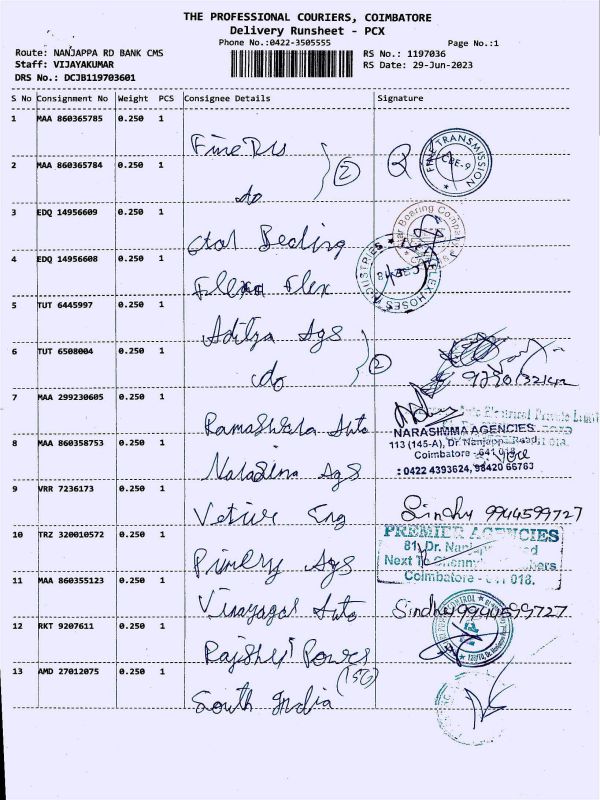 THE PROFESSIONAL COURIERS, COIMBATORE
Delivery Runsheet - PCX
Phone No.:0422-3505555
Page No.:1
Route: NANJAPPA RD BANK CMS
RS No.: 1197036
Staff: VIJAYAKUMAR
RS Date: 29-Jun-2023
DRS No.: DCJB119703601
S No Consignment No Weight PCS Consignee Details Signature
1 MAA 860365785 0.250 1
2
FINE TRANSMISSION
CBE-9
2 MAA 860365784 0.250 1
do
3 EDQ 14956609 0.250 1
Star Bearing
4 EDQ 14956608 0.250 1
Flex
5 TUT 6445997 0.250 1
Aditya Ags
2
6 TUT 6508004 0.250 1
do
7 MAA 299230605 0.250 1
Auto
NARASIMMA AGENCIES
113 (145-A), Dr. Nanjappa Road,
Coimbatore - 641 018.
: 0422 4393624, 98420 66763
8 MAA 860358753 0.250 1
Ags
9 VRR 7236173 0.250 1
Eng
Sindhu 9944599727
10 TRZ 320010572 0.250 1
Ags
PREMIER AGENCIES
81, Dr.
Next To
Coimbatore - 641 018.
11 MAA 860355123 0.250 1
Vinayagar Auto
Sindhu 9944599727
12 RKT 9207611 0.250 1
Power
13 AMD 27012075 0.250 1
South India